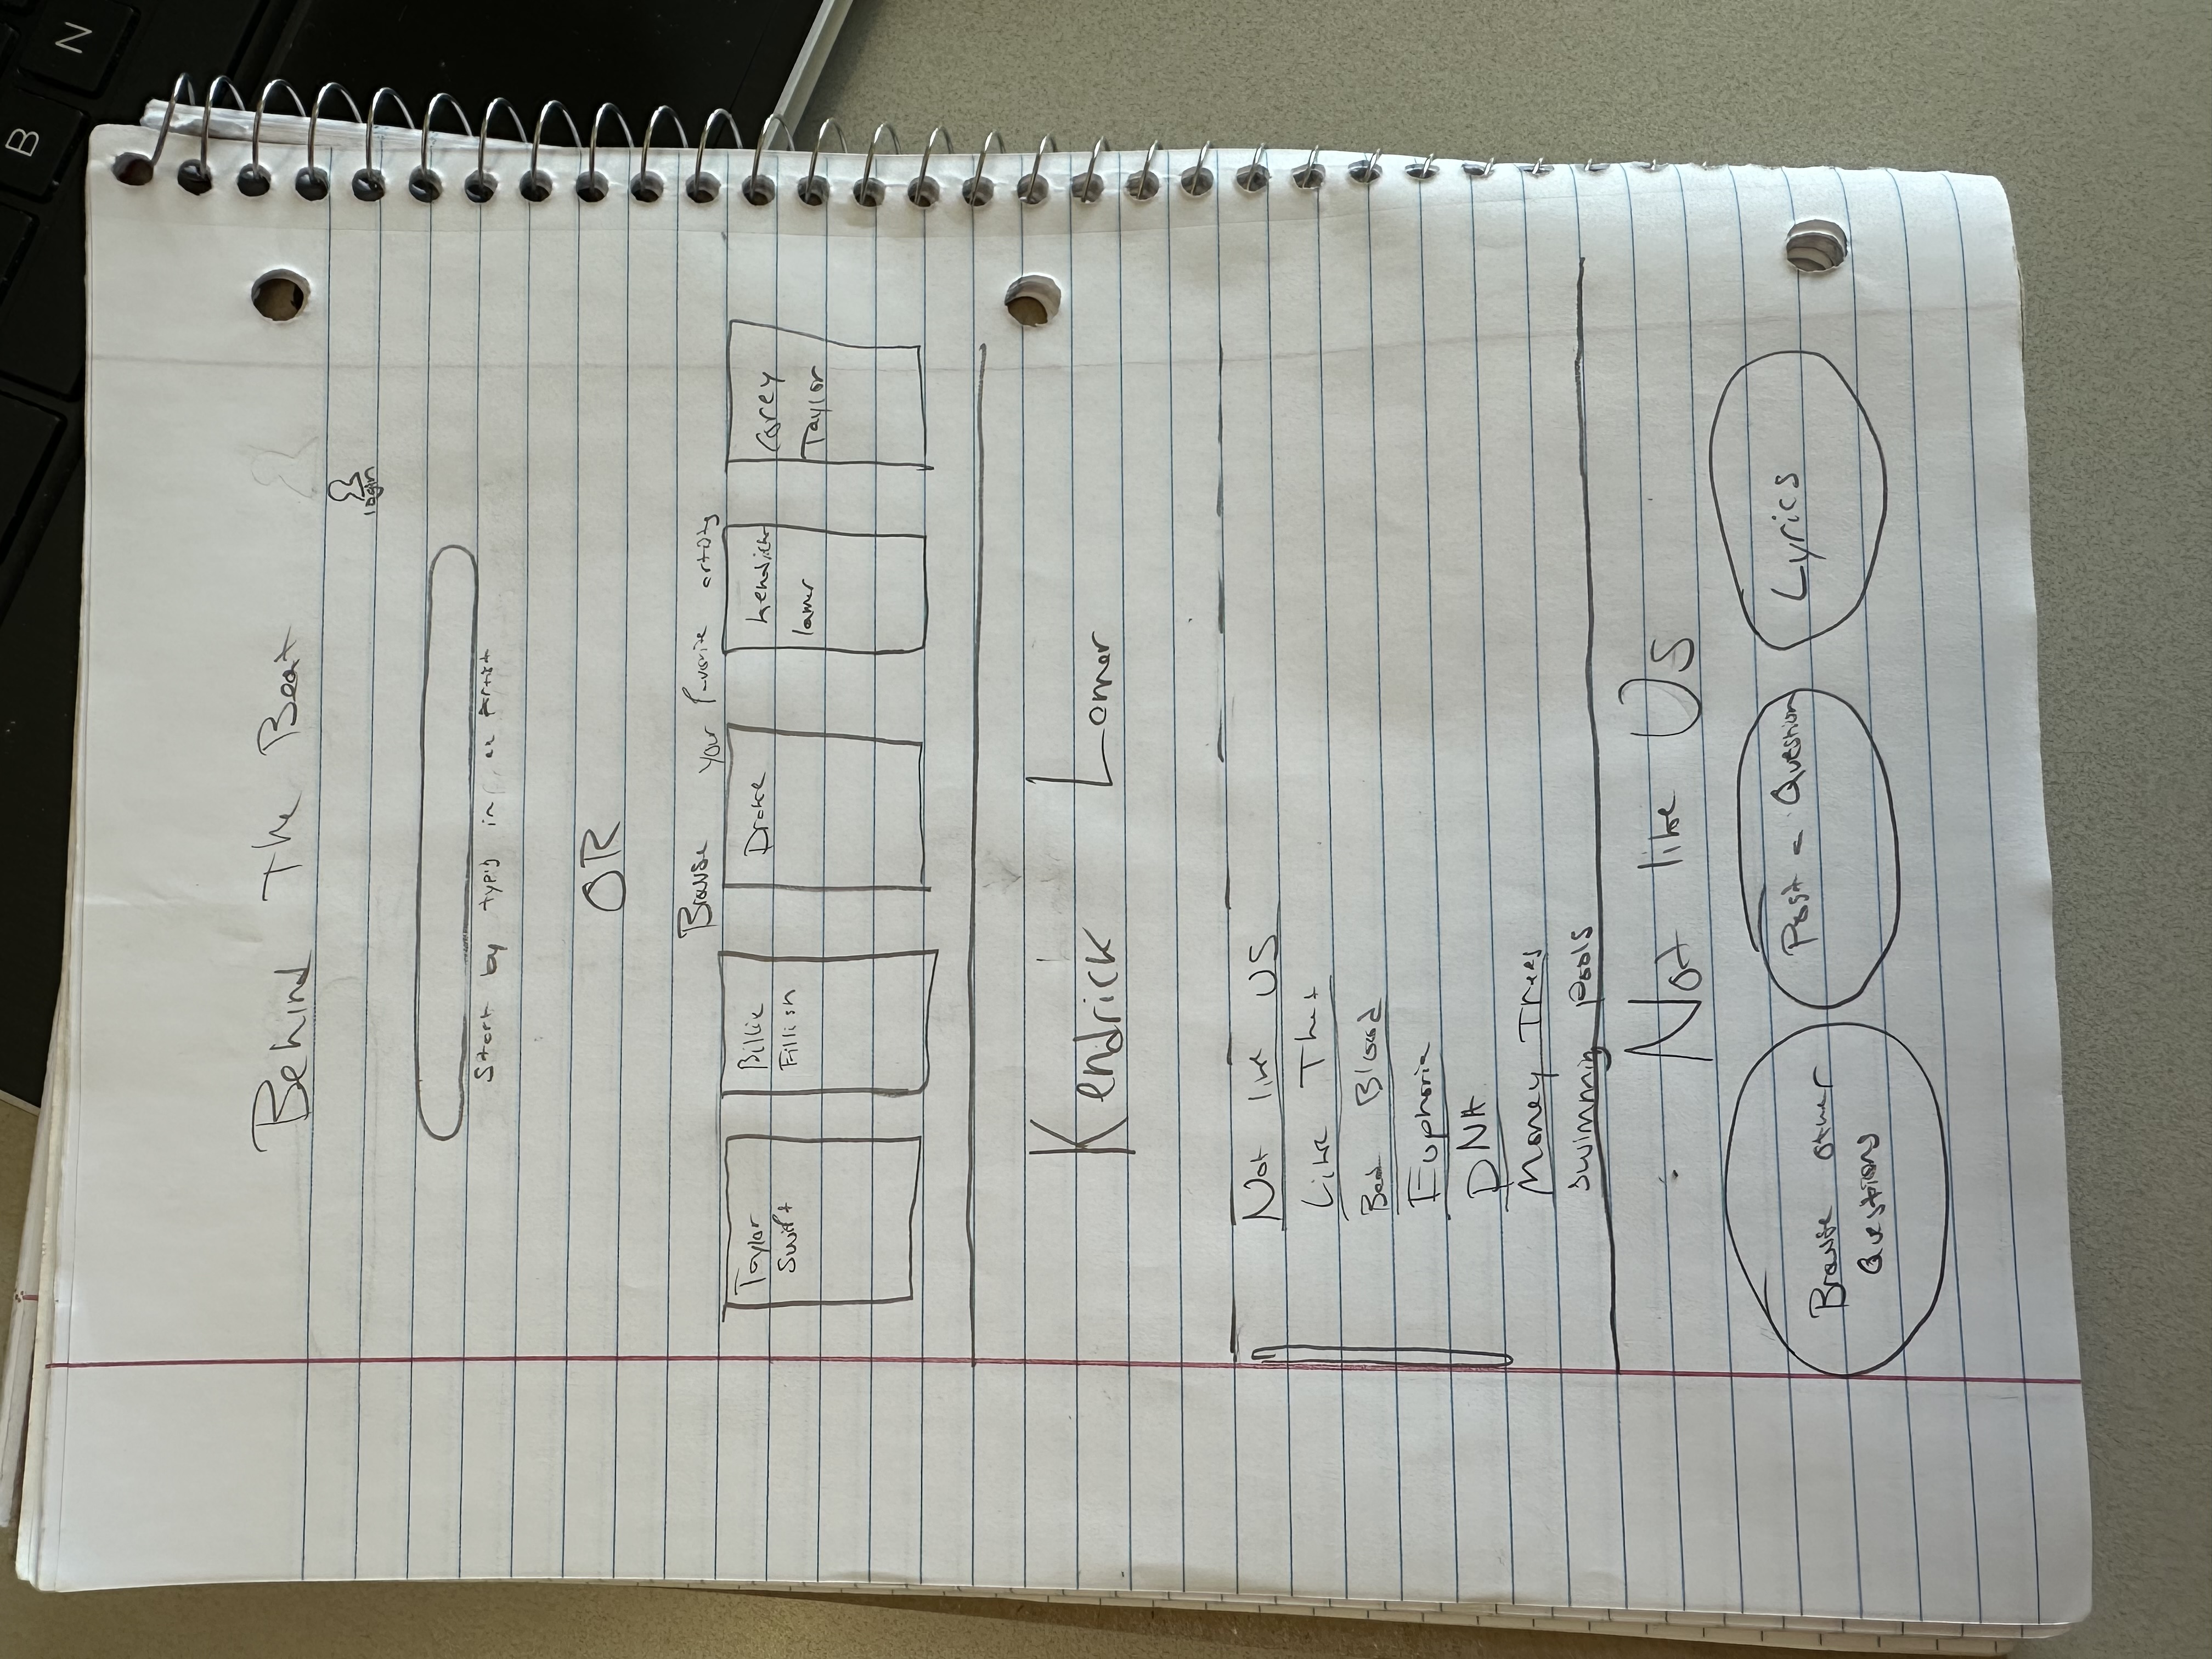 B
N
Behind The Beat
login
Start by typing in an Artist
OR
Browse your favorite artists
Taylor
Swift
Billie
Eillish
Drake
kendrick
lamar
Corey
Taylor
Kendrick Lamar
Not like US
Like That
Bad Blood
Euphoria
DNA
Money Trees
Swimming Pools
Not like Us
Browse other
Questions
Post a Question
Lyrics